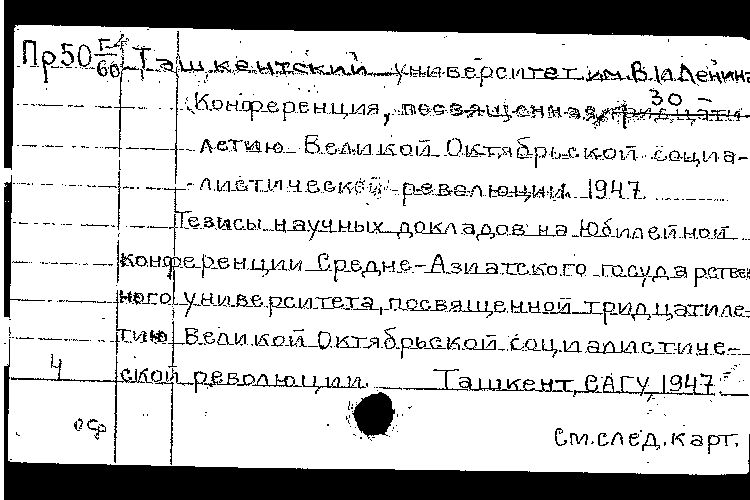 Пр50 Г-4/60 Ташкентский университет им. В.И. Ленина
Конференция, посвященная тридцати- 30-
летию Великой Октябрьской социа-
листической революции. 1947
Тезисы научных докладов на юбилейной
конференции Средне-Азиатского государствен
ного университета, посвященной тридцатиле-
тию Великой Октябрьской социалистиче-
4 ской революции. Ташкент, САГУ, 1947
См. след. карт.